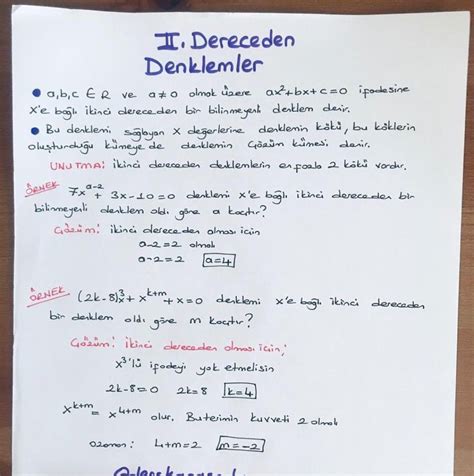 II. Dereceden
Denklemler
• a,b,c ∈ R ve a≠0 olmak üzere ax²+bx+c=0 ifadesine
x'e bağlı ikinci dereceden bir bilinmeyenli denklem denir.
• Bu denklemi sağlayan x değerlerine denklemin kökü, bu köklerin
oluşturduğu kümeye de denklemin çözüm kümesi denir.
UNUTMA: ikinci dereceden denklemlerin en fazla 2 kökü vardır.
ÖRNEK 7x^(a-2) + 3x-10=0 denklemi x'e bağlı ikinci dereceden bir
bilinmeyenli denklem oldı göre a kaçtır?
Çözüm: ikinci dereceden olması için
a-2=2 olmalı
a-2=2 a=4
ÖRNEK (2k-8)x³ + x^(k+m) + x=0 denklemi x'e bağlı ikinci dereceden
bir denklem oldı göre m kaçtır?
Çözüm: ikinci dereceden olması için;
x³'lü ifadeyi yok etmelisin
2k-8=0 2k=8 k=4
x^(k+m) = x^(4+m) olur. Bu terimin kuvveti 2 olmalı
O zaman: 4+m=2 m=-2